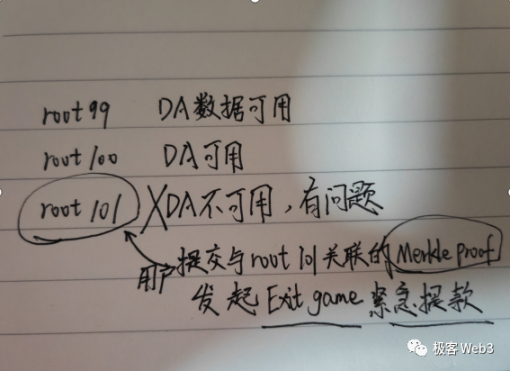 root 99 DA数据可用
root 100 DA可用
root 101 X DA不可用，有问题
用户提交与root 101关联的Merkle proof
发起Exit game紧急提款
极客Web3